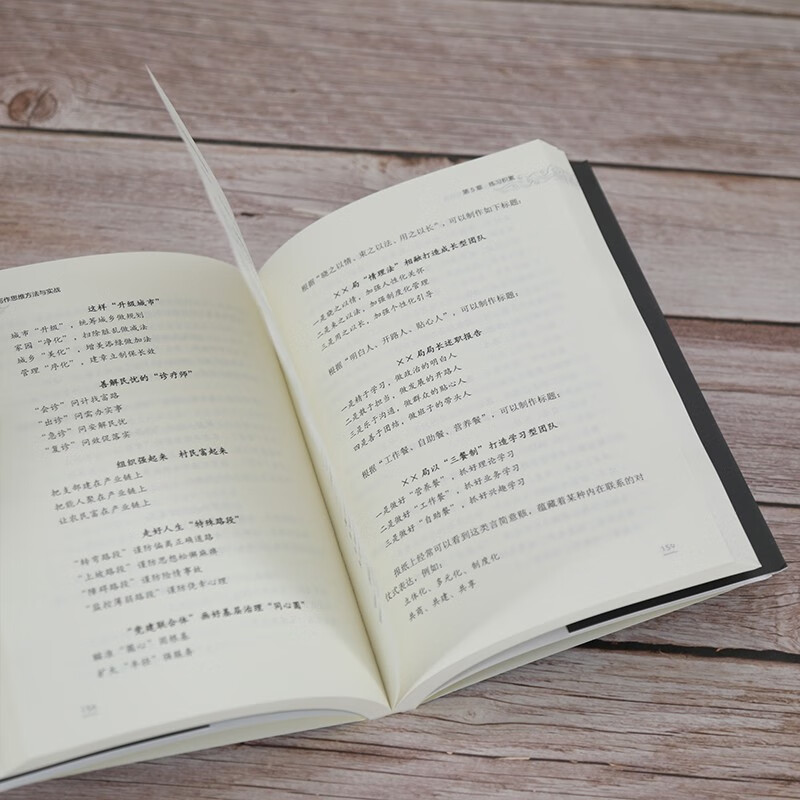 写作思维方法与实战
这样“升级城市”
城市“升级”，统筹城乡做规划
家园“净化”，扫除脏乱做减法
城乡“美化”，增美添绿做加法
管理“序化”，建章立制保长效
善解民忧的“诊疗师”
“会诊”问计找富路
“出诊”问需办实事
“急诊”问安解民忧
“复诊”问效促落实
组织强起来 村民富起来
把支部建在产业链上
把能人聚在产业链上
让农民富在产业链上
走好人生“特殊路段”
“转弯路段”谨防偏离正确道路
“上坡路段”谨防思想松懈麻痹
“障碍路段”谨防险情事故
“监控薄弱路段”谨防侥幸心理
“党建联合体”画好基层治理“同心圆”
瞄准“圆心”固根基
扩大“半径”强服务
158
第5章 练习积累
根据“晓之以情、束之以法、用之以长”，可以制作如下标题：
××局“情理法”相融打造成长型团队
一是晓之以情，加强人性化关怀
二是束之以法，加强制度化管理
三是用之以长，加强个性化引导
根据“明白人、开路人、贴心人”，可以制作标题：
××局局长述职报告
一是精于学习，做政治的明白人
二是敢于担当，做发展的开路人
三是乐于沟通，做群众的贴心人
四是善于团结，做班子的带头人
根据“工作餐、自助餐、营养餐”，可以制作标题：
××局以“三餐制”打造学习型团队
一是做好“营养餐”，抓好理论学习
二是做好“工作餐”，抓好业务学习
三是做好“自助餐”，抓好兴趣学习
报纸上经常可以看到这类言简意赅，蕴藏着某种内在联系的对
仗式表达，例如：
立体化、多元化、制度化
共商、共建、共享
159